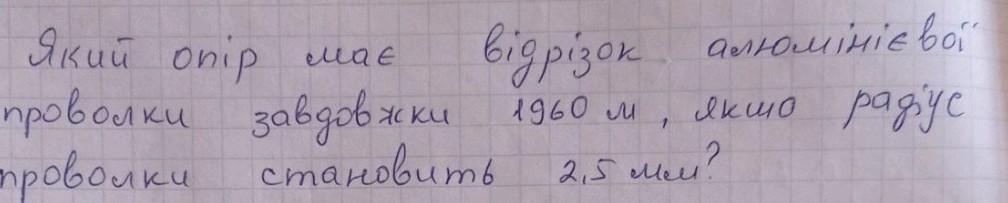 Який опір має відрізок алюмінієвої
проволки завдовжки 1960 м, якшо радіус
проволки становить 2,5 мм?